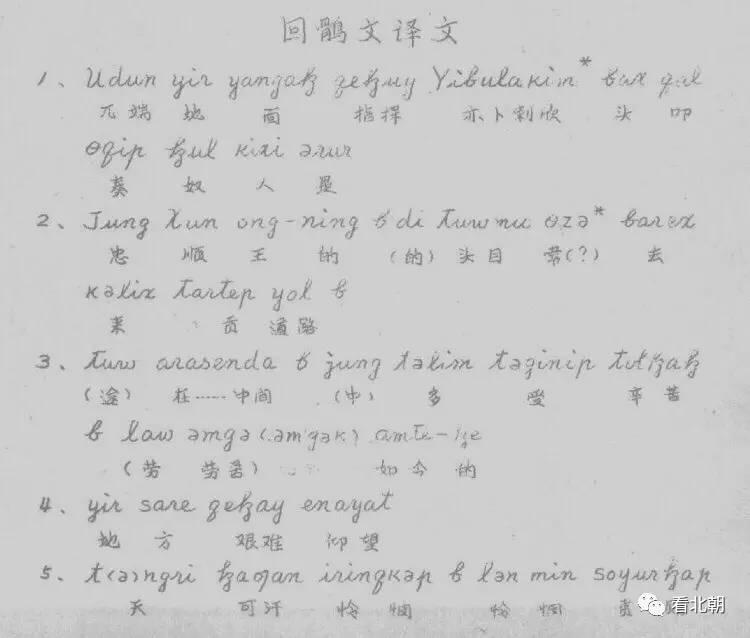 回鹘文译文
1、Udun yir yangaⱪ qeⱪuy Yibulakim* bax qal
兀端 地 面 指挥 亦卜剌欣 头 叩
ɵqip ⱪul kixi ərur
奏 奴 人 是
2、Jung Xun ong-ning ɓ di tuwnu ɵzə* barex
忠 顺 王 的 (的) 头目 带(?) 去
kəlix tartep yol ɓ
来 贡 道路
3、tuw arasenda ɓ jung təlim təginip tutⱪaⱪ
(途) 在……中间 (中) 多 受 辛苦
ɓ law əmgə (əm'gək) amte-ⱪe
(劳 劳苦) 如今 的
4、yir sare qeⱪay enayat
地 方 艰难 仰望
5、t(ə)ngri ⱪaƣan irinqkəp ɓ lən min soyurⱪap
天 可汗 怜悯 怜悯
看北朝